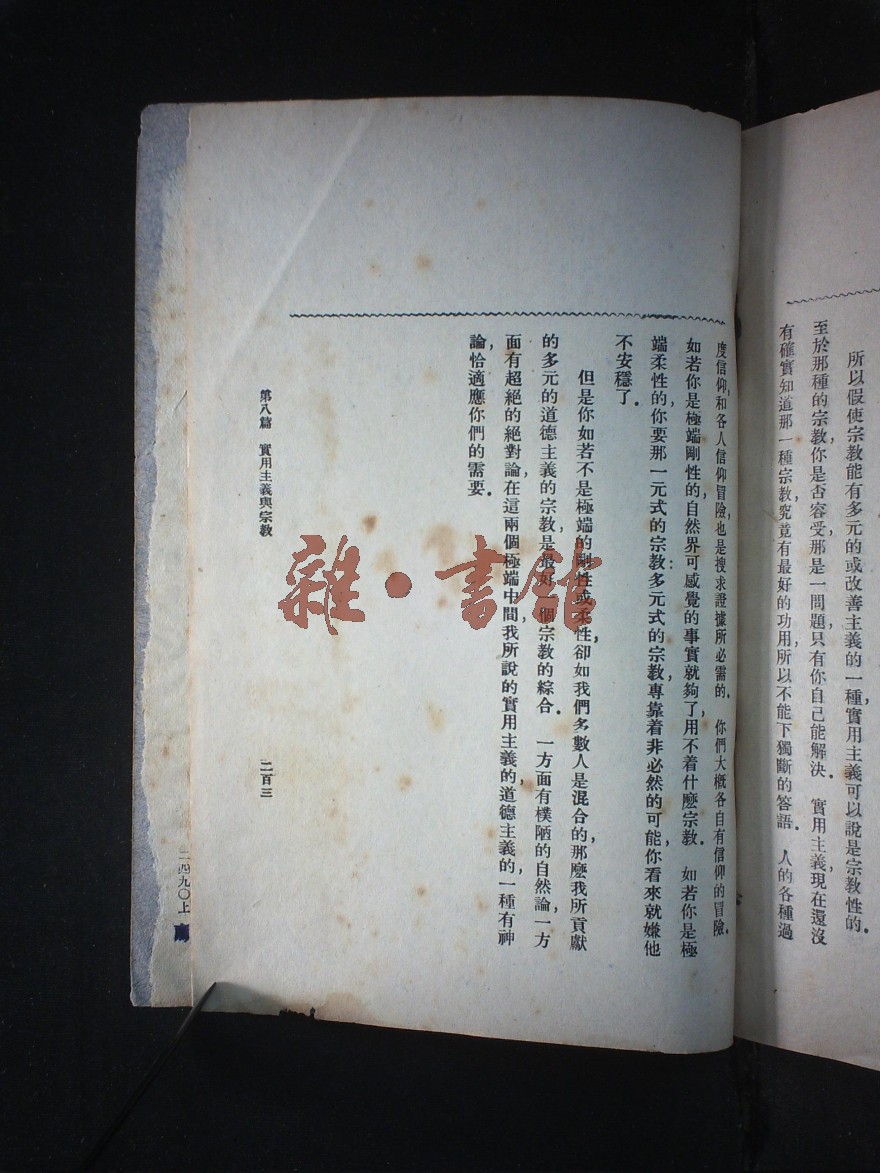 所以假使宗教能有多元的或改善主義的一種實用主義可以說是宗教性的．
至於那種的宗教，你是否容受那是一問題只有你自己能解決．實用主義，現在還沒
有確實知道那一種宗教，究竟有最好的功用，所以不能下獨斷的答語．人的各種過
度信仰，和各人信仰冒險，也是搜求證據所必需的．你們大概各自有信仰的冒險．
如若你是極端剛性的，自然界可感覺的事實就夠了，用不着什麽宗教．如若你是極
端柔性的，你要那一元式的宗教：多元式的宗教，專靠着非必然的可能，你看來就嫌他
不安穩了．
但是你如若不是極端的剛性或柔性，卻如我們多數人是混合的，那麽我所貢獻
的多元的道德主義的宗教，是最好一個宗教的綜合．一方面有樸陋的自然論，一方
面有超絕的絕對論，在這兩個極端中間，我所說的實用主義的，道德主義的，一種有神
論，恰適應你們的需要．
第八篇　實用主義與宗教
二百三
二四九〇上
雜・書館